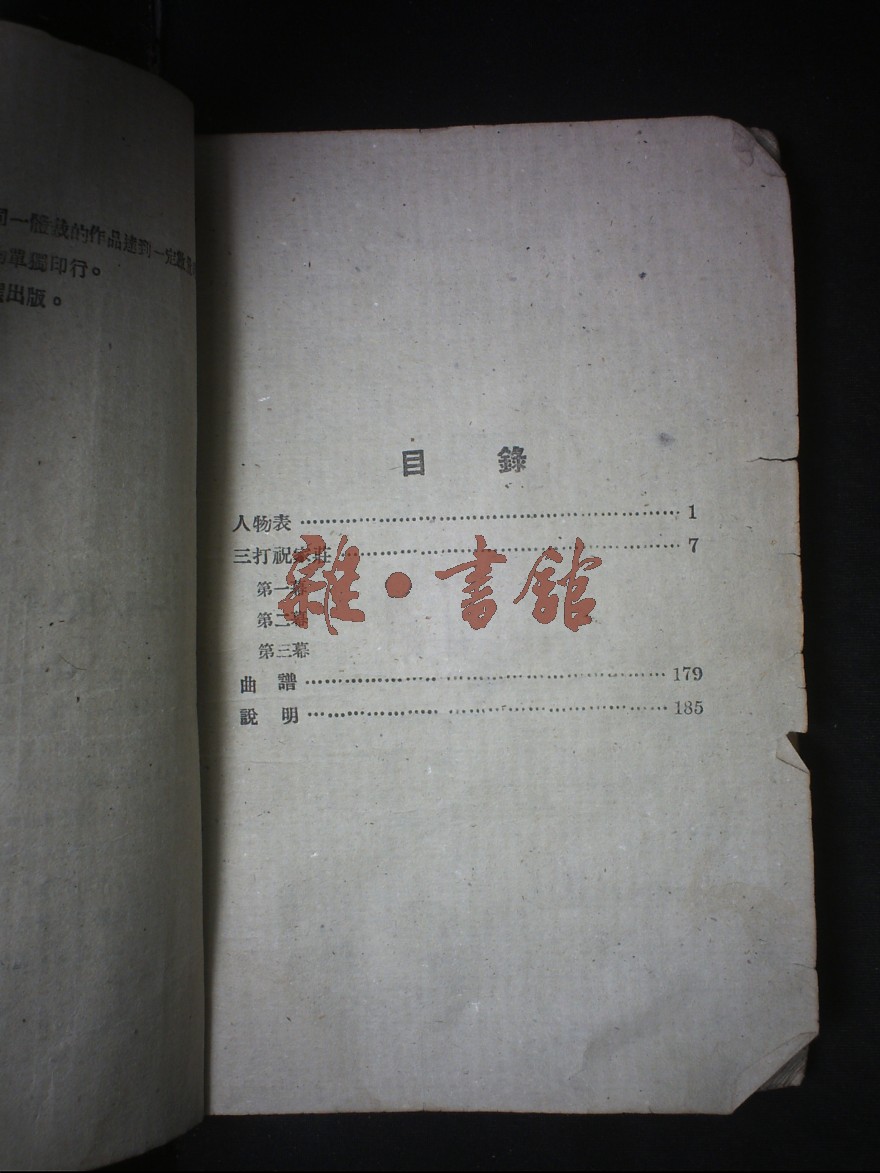 一體裁的作品達到一定數
單獨印行。
出版。
目　錄
人物表 1
三打祝家莊 7
第一幕
第二幕
第三幕
曲　譜 179
說　明 185
雜·書館